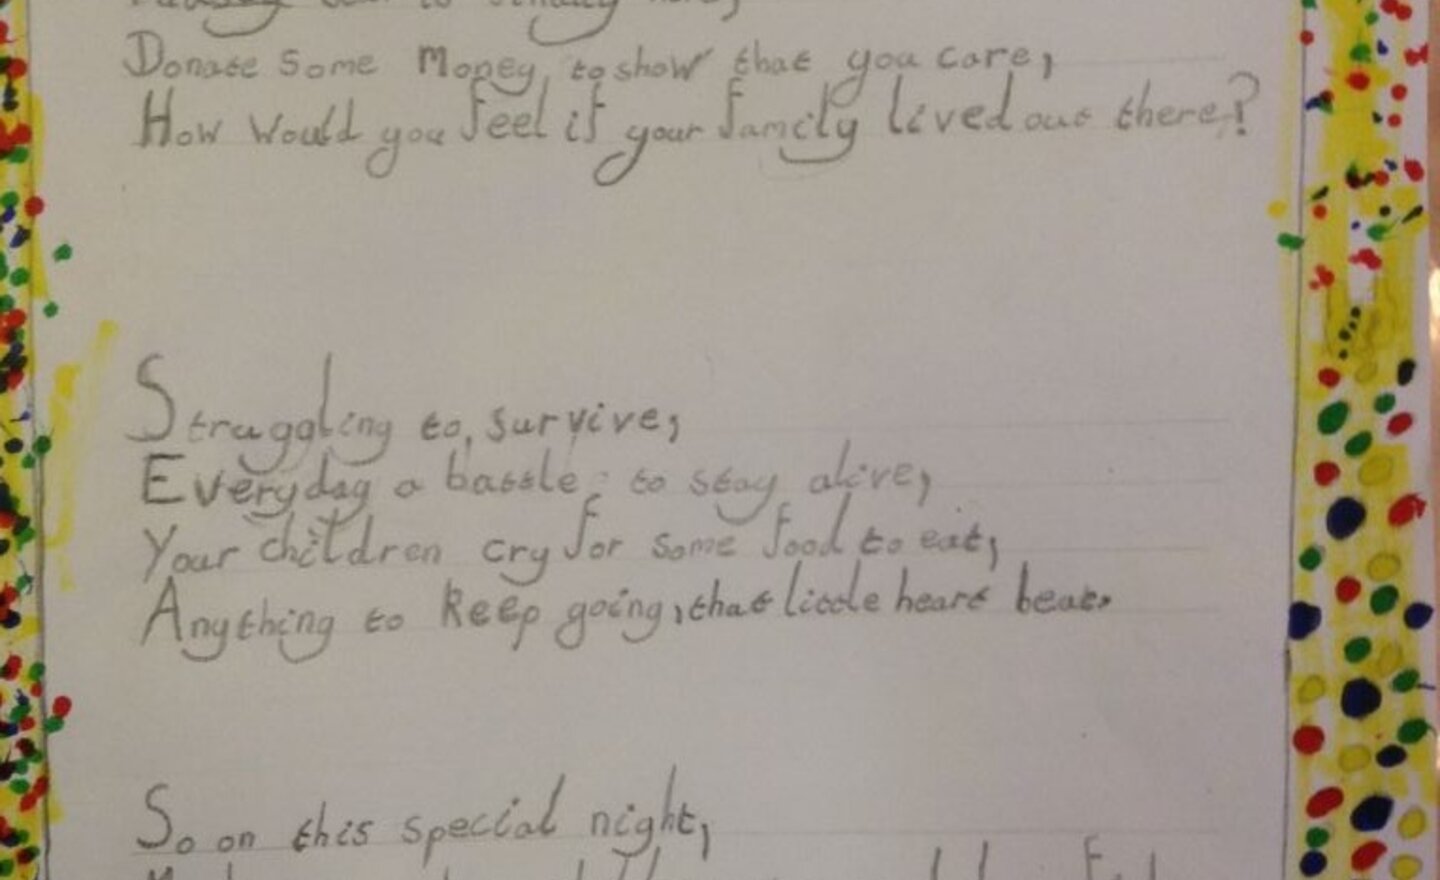 Donate some money, to show that you care,
How would you feel if your family lived out there?
Struggling to, survive,
Everyday a battle to stay alive,
Your children cry for some food to eat,
Anything to keep going, that little heart beat.
So on this special night,